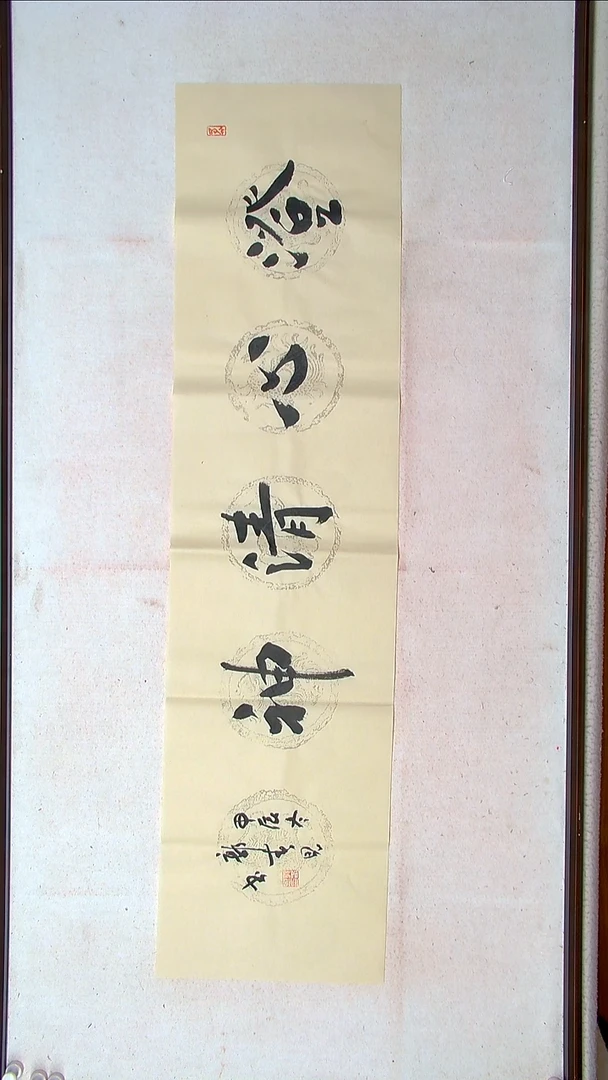 澄心清神
甲辰冬
书